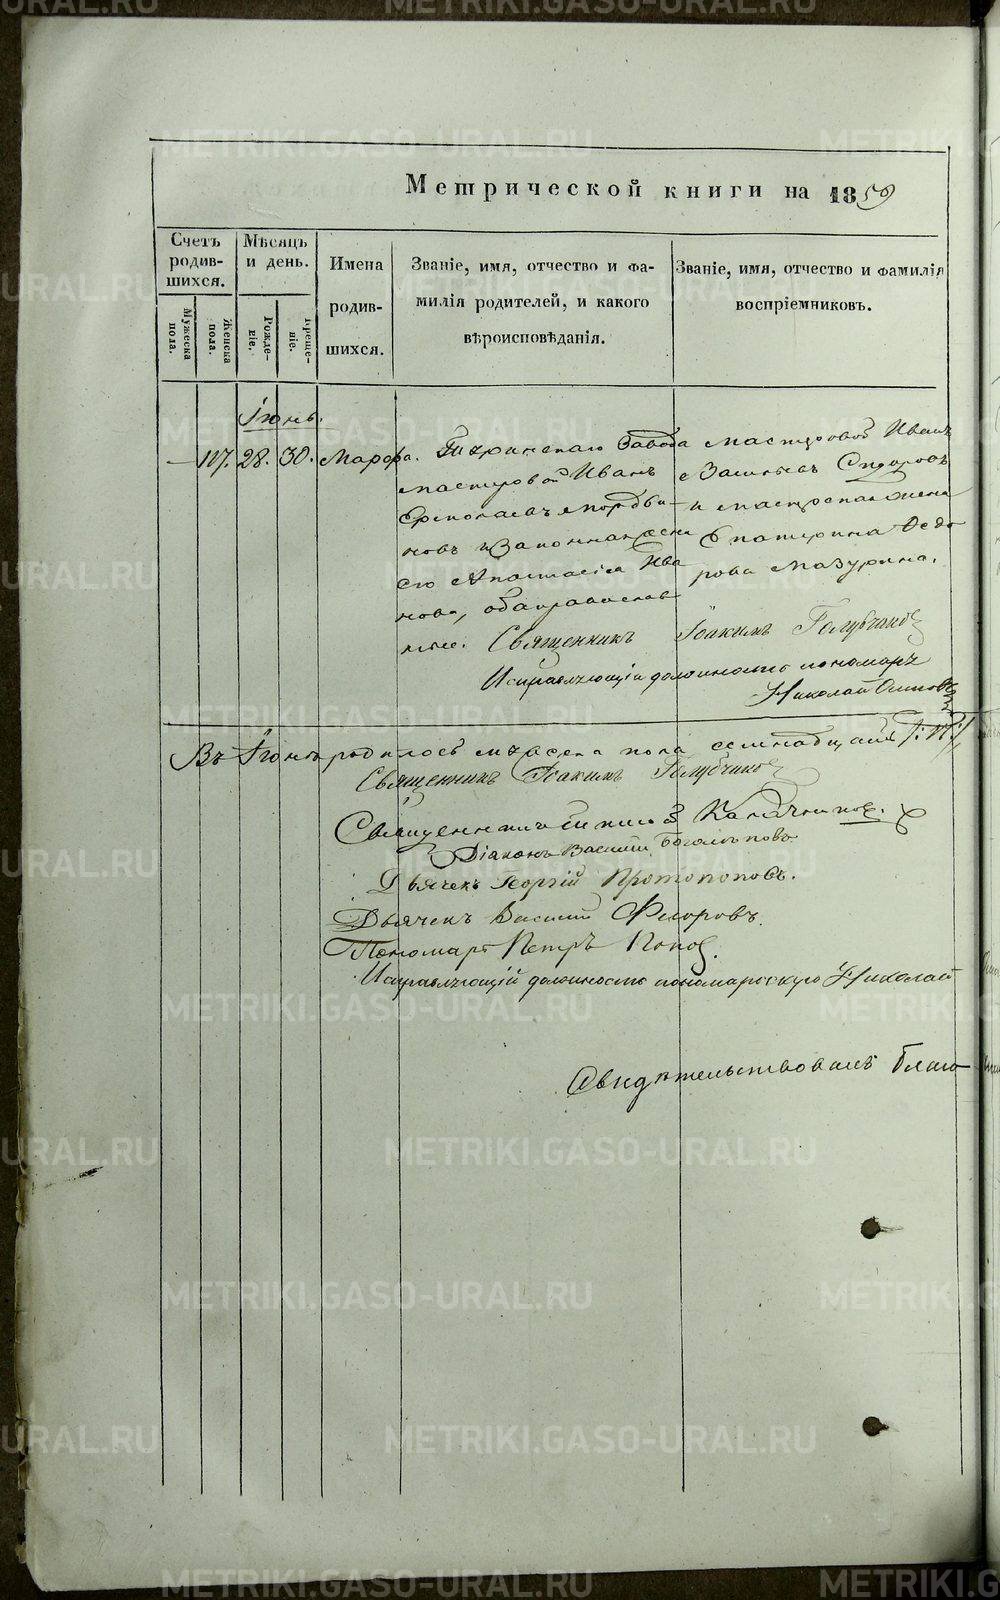 Метрической книги на 1859
Счетъ родив-шихся.
Мѣсяцъ и день.
Имена родив-шихся.
Званіе, имя, отчество и фа-
милія родителей, и какого
вѣроисповѣданія.
Званіе, имя, отчество и фамилія
воспріемниковъ.
Мужеска пола.
Женска пола.
Рожде-ніе.
Креще-ніе.
Іюнь.
117. 28. 30. Марѳа.
Завода
мастеровой Иванъ
Ермолаевъ Мордви-
новъ и законная жена
его Анастасія Ива
нова, оба православ
ные.
мастеровой Иванъ
Васильевъ Сидоровъ
и мастерская жена
Екатерина Ѳедо
рова Мазурина.
Священникъ Іоакимъ Голубчиковъ
Исправляющій должность пономаря
Николай
Въ Іюнѣ родилось мужеска пола семнадцать /:17:/
Священникъ Іоакимъ Голубчиковъ
Священникъ
Діаконъ Василій
Дьячекъ Георгій Протопоповъ.
Дьячекъ Василій Флоровъ.
Пономарь Петръ Поповъ.
Исправляющій должность пономарскую Николай
Свидѣтельствовалъ Благо
METRIKI.GASO-URAL.RU